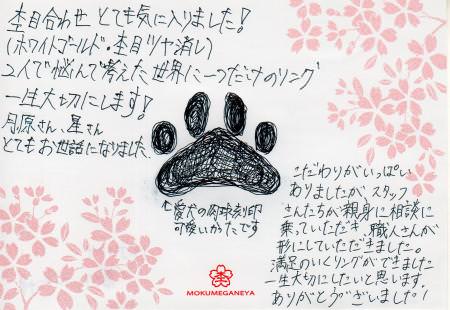 杢目合わせ とても気に入りました!
(ホワイトゴールド・杢目ツヤ消し)
2人で悩んで考えた世界に一つだけのリング
一生大切にします!
月原さん、星さん
とてもお世話になりました、
↑愛犬の肉球刻印
可愛いかったです
こだわりがいっぱい
ありましたが、スタッフ
さんたちが親身に相談に
乗っていただき、職人さんが
形にしていただきました。
満足のいくリングができました
一生大切にしたいと思います。
ありがとうございました!
MOKUMEGANEYA